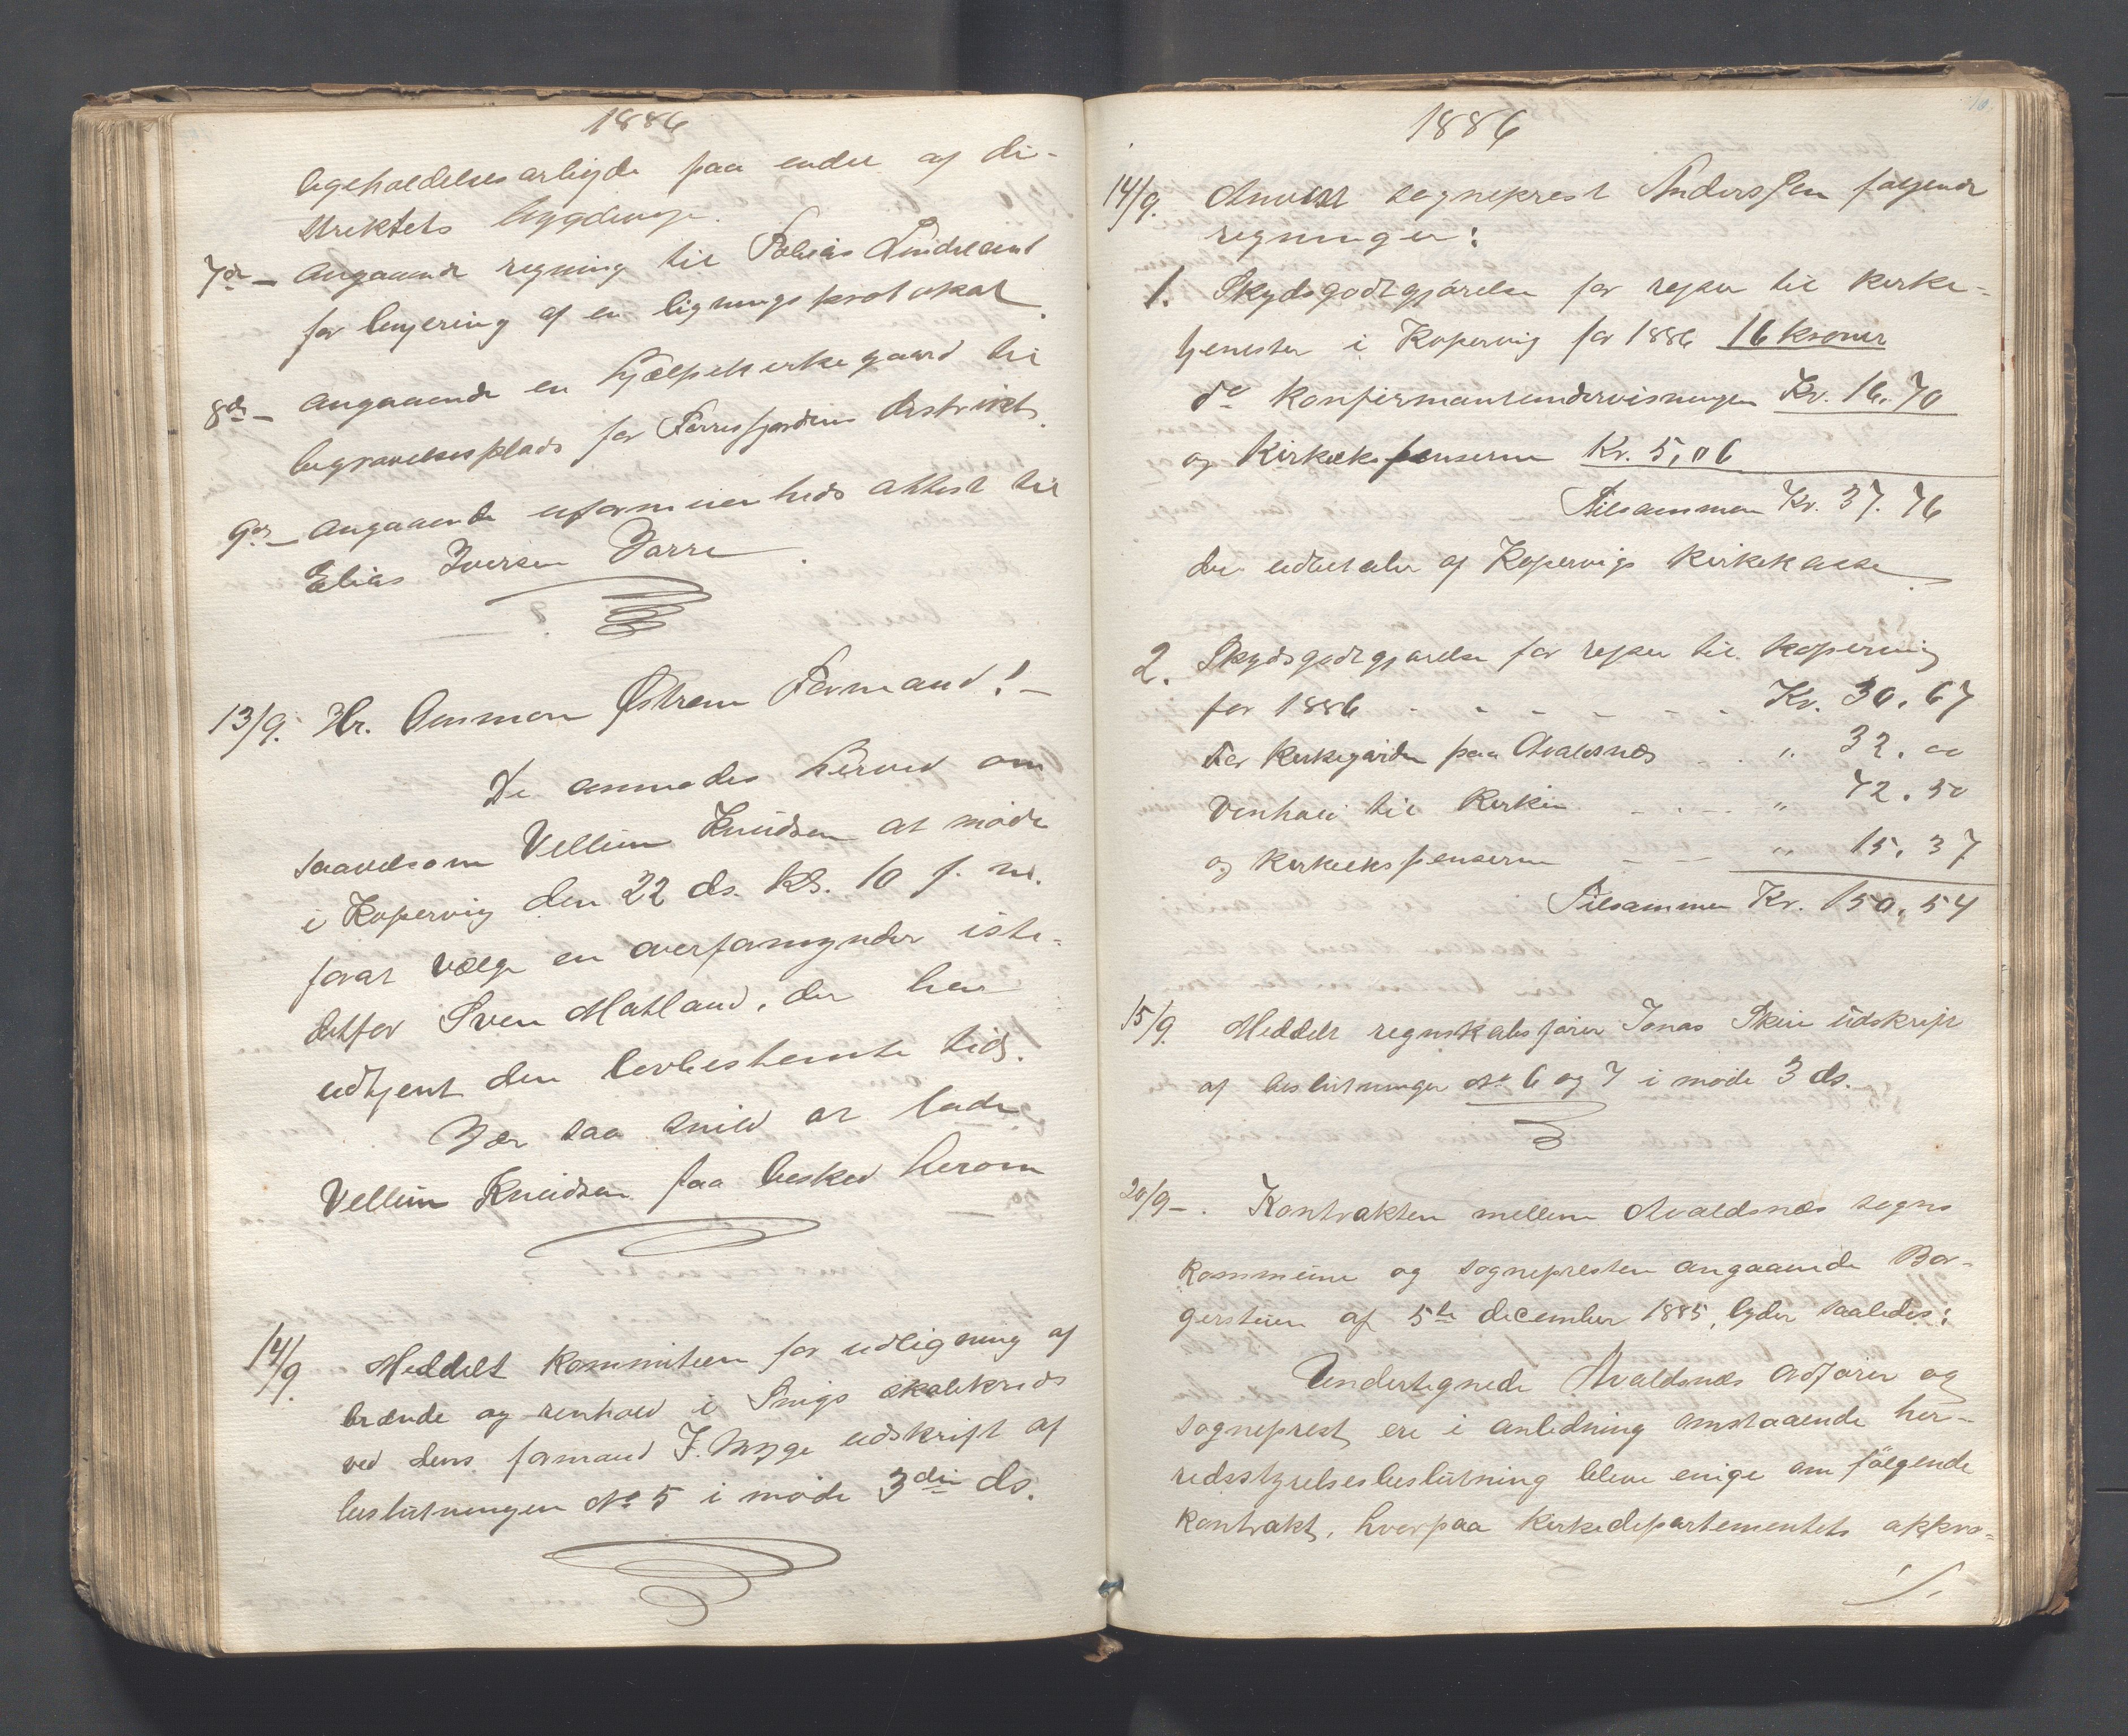 1886
ligeholdelsesarbejde paa endel af di-
striktets bygdeveje.
7de – angaaende regning til Tobias Lindstrand
for levering af en ligningsprotokol.
8de – angaaende en hjælpekirkegaard til
begravelsesplads for Førresfjordens distrikt.
9de – angaaende uformuenheds attest til
Elias Iversen Vorre
13/9. Hr. Ommon Østrem Formand! –
De anmodes herved om
saavelsom Vellum Knudsen at møde
i Kopervig den 22 ds. kl. 10 f. m.
forat vælge en overformynder iste-
detfor Sven Matland, der har
udtjent den lovbestemte tid.
Vær saa snild at lade
Vellum Knudsen faa besked herom
14/9. Meddelt kommiteen for udligning af
brænde og renhold i Snigs skolekreds
ved dens formand J. Myge udskrift af
beslutningen No 5 i møde 3die ds.
1886
14/9. Anvist sogneprest Anderssen følgende
regninger:
1. Skydsgodtgjørelse for rejser til kirke-
tjenester i Kopervig for 1886 16 kroner
do konfirmantundervisningen Kr. 16.70
og Kirkeekspenserne Kr. 5,06
Tilsammen Kr. 37.76
der udbetales af Kopervigs kirkekasse
2. Skydsgodtgjørelse for rejser til Kopervig
for 1886 - - - - - - Kr. 30.67
For kirkegården paa Avaldsnæs - - " 32.00
Renhold til Kirken - - - " 72.50
og kirkeekspenserne - - - " 15.37
Tilsammen Kr. 150.54
15/9. Meddelt regnskabsfører Jonas Skeie udskrift
af beslutninger No 6 og 7 i møde 3 ds.
20/9 –. Kontrakten mellem Avaldsnæs sogns
kommune og sognepresten angaaende Bor-
gerstuen af 5te december 1885, lyder saaledes:
Undertegnede Avaldsnæs ordfører og
sogneprest ere i anledning omstaaende her-
redsstyrelsesbeslutning bleve enige om følgende
kontrakt, hvorpaa Kirkedepartementets appro-